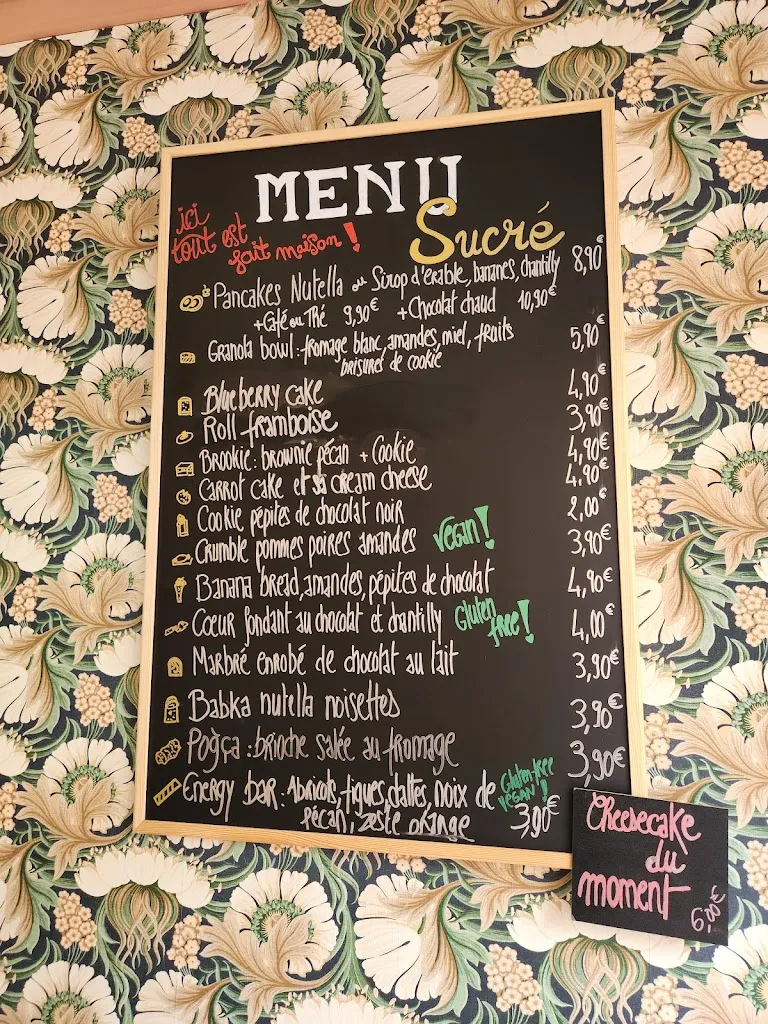 MENU
ici
tout est
fait maison !
Sucré
Pancakes Nutella ou Sirop d'érable, bananes, chantilly 8,90€
+ Café ou Thé 9,90€ + Chocolat chaud 10,90€
Granola bowl : fromage blanc, amandes, miel, fruits 5,90€
brisures de cookie
Blueberry cake 4,90€
Roll framboise 3,90€
Brookie : brownie pécan + Cookie 4,90€
Carrot cake et sa cream cheese 4,90€
Cookie pépites de chocolat noir 2,00€
Crumble pommes poires amandes vegan ! 3,90€
Banana bread, amandes, pépites de chocolat 4,90€
Cœur fondant au chocolat et chantilly Gluten free ! 4,00€
Marbré enrobé de chocolat au lait 3,90€
Babka nutella noisettes 3,90€
Poğça : brioche salée au fromage 3,90€
Energy bar : Abricots, figues, dattes, noix de Gluten-free VEGAN !
pécan, zeste orange 3,90€
Cheesecake
du
moment
6,00€